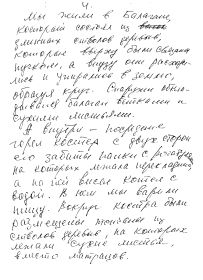 4.
Мы жили в балагане,
который состоял из
длинных стволов деревьев,
которые вверху были связаны
пучком, а внизу они расходи-
лись и упирались в землю,
образуя круг. Снаружи
балаган ветками и
сухими листьями.
А внутри – посредине
горел костёр с двух сторон
его забиты палки с
на которых лежала перекладина,
а на ней висел котёл с
водой. В нём мы варили
пищу. Вокруг костра были
размещены
стволов деревьев, на которых
лежали сухие листья,
вместо матрацов.